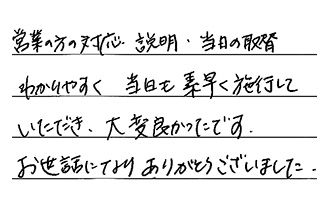 営業の方の対応、説明、当日の取替
わかりやすく 当日も素早く施行して
いただき、大変良かったです。
お世話になりありがとうございました。